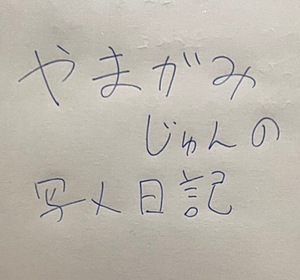 やまがみ
じゅんの
写人日記